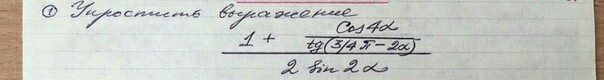 ① Упростить выражение
1 + cos4α
tg(3/4π-2α)
2 sin2α